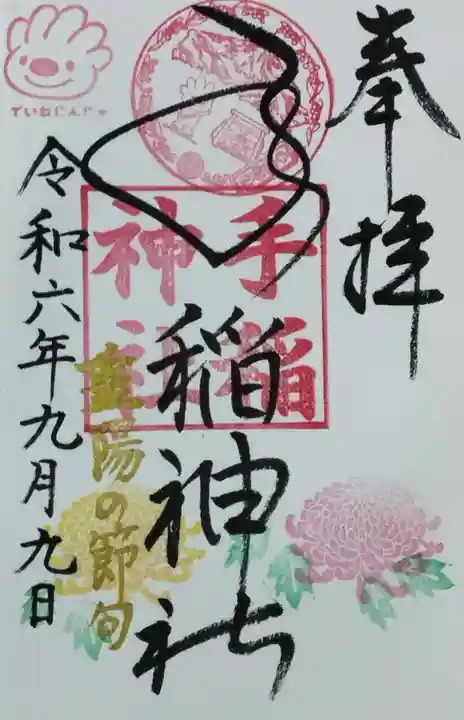 奉拝
手稲神社
手稲神社
重陽の節句
令和六年九月九日
ていねじんじゃ